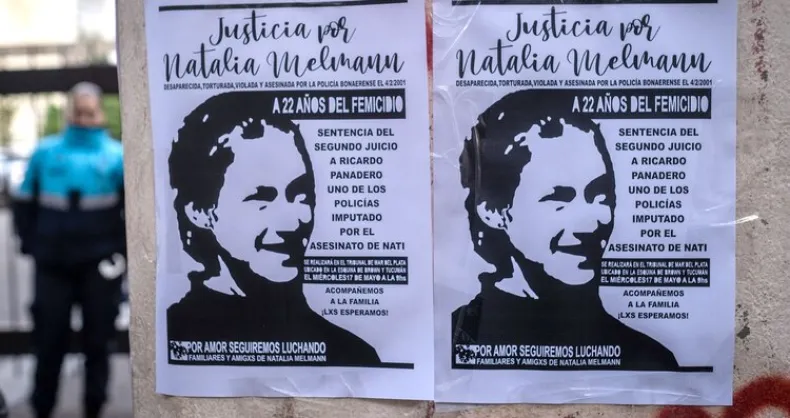 Justicia por
Natalia Melmann
DESAPARECIDA,TORTURADA,VIOLADA Y ASESINADA POR LA POLICÍA BONAERENSE EL 4/2/2001
A 22 AÑOS DEL FEMICIDIO
SENTENCIA DEL
SEGUNDO JUICIO
A RICARDO
PANADERO
UNO DE LOS
POLICÍAS
IMPUTADO
POR EL
ASESINATO DE NATI
SE REALIZARÁ EN EL TRIBUNAL DE MAR DEL PLATA
UBICADO EN LA ESQUINA DE BROWN Y TUCUMÁN
EL MIÉRCOLES 17 DE MAYO A LA 9hs
ACOMPAÑEMOS
A LA FAMILIA
¡LXS ESPERAMOS!
POR AMOR SEGUIREMOS LUCHANDO
FAMILIARES Y AMIGXS DE NATALIA MELMANN
Justicia por
Natalia Melmann
DESAPARECIDA,TORTURADA,VIOLADA Y ASESINADA POR LA POLICÍA BONAERENSE EL 4/2/2001
A 22 AÑOS DEL FEMICIDIO
SENTENCIA DEL
SEGUNDO JUICIO
A RICARDO
PANADERO
UNO DE LOS
POLICÍAS
IMPUTADO
POR EL
ASESINATO DE NATI
SE REALIZARÁ EN EL TRIBUNAL DE MAR DEL PLATA
UBICADO EN LA ESQUINA DE BROWN Y TUCUMÁN
EL MIÉRCOLES 17 DE MAYO A LA 9hs
ACOMPAÑEMOS
A LA FAMILIA
¡LXS ESPERAMOS!
POR AMOR SEGUIREMOS LUCHANDO
FAMILIARES Y AMIGXS DE NATALIA MELMANN